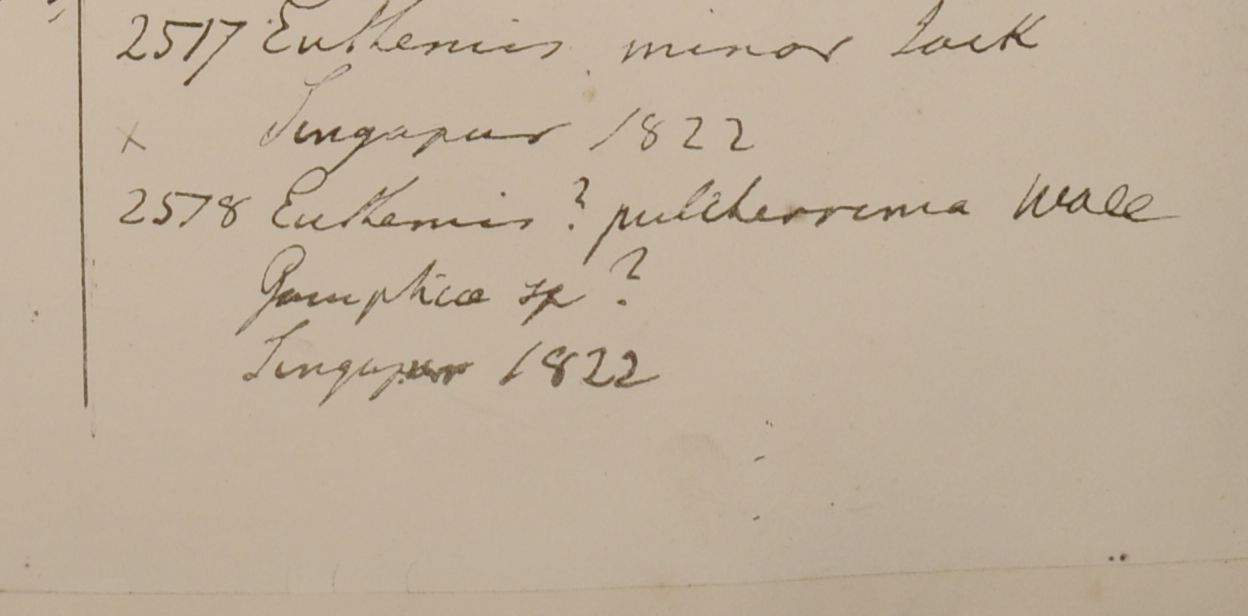 2517 Euthemis minor Jack
x Singapur 1822
2518 Euthemis? pulcherrima Wall
Gomphiae sp?
Singapur 1822